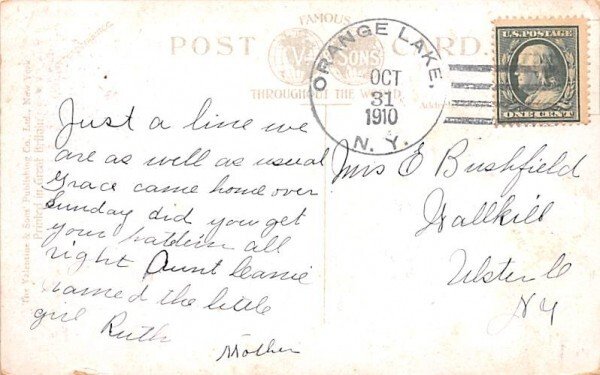 FAMOUS
POST CARD.
& SONS
THROUGHOUT THE WORLD
ORANGE LAKE,
OCT
31
1910
N. Y.
U.S. POSTAGE
ONE CENT
The Valentine & Sons' Publishing Co., Ltd., New York
Printed in Great Britain.
Just a line we
are as well as usual
Grace came home over
Sunday did you get
your all
right Aunt
named the little
girl Ruth
Mother
Mrs E Bushfield
Wallkill
Ulster Co
N Y